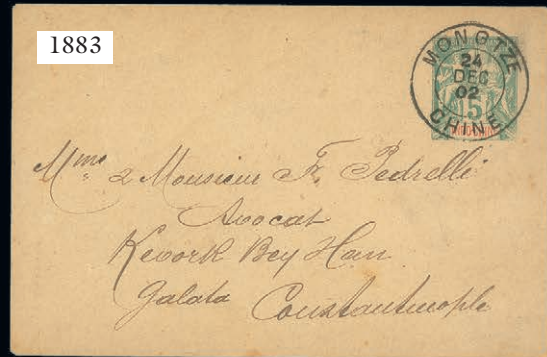 1883
MONGTZE
24
DEC
02
CHINE
15
INDO-CHINE
Mme & Monsieur F. Pedrelli
Avocat
Kevork Bey Han
Galata Constantinople